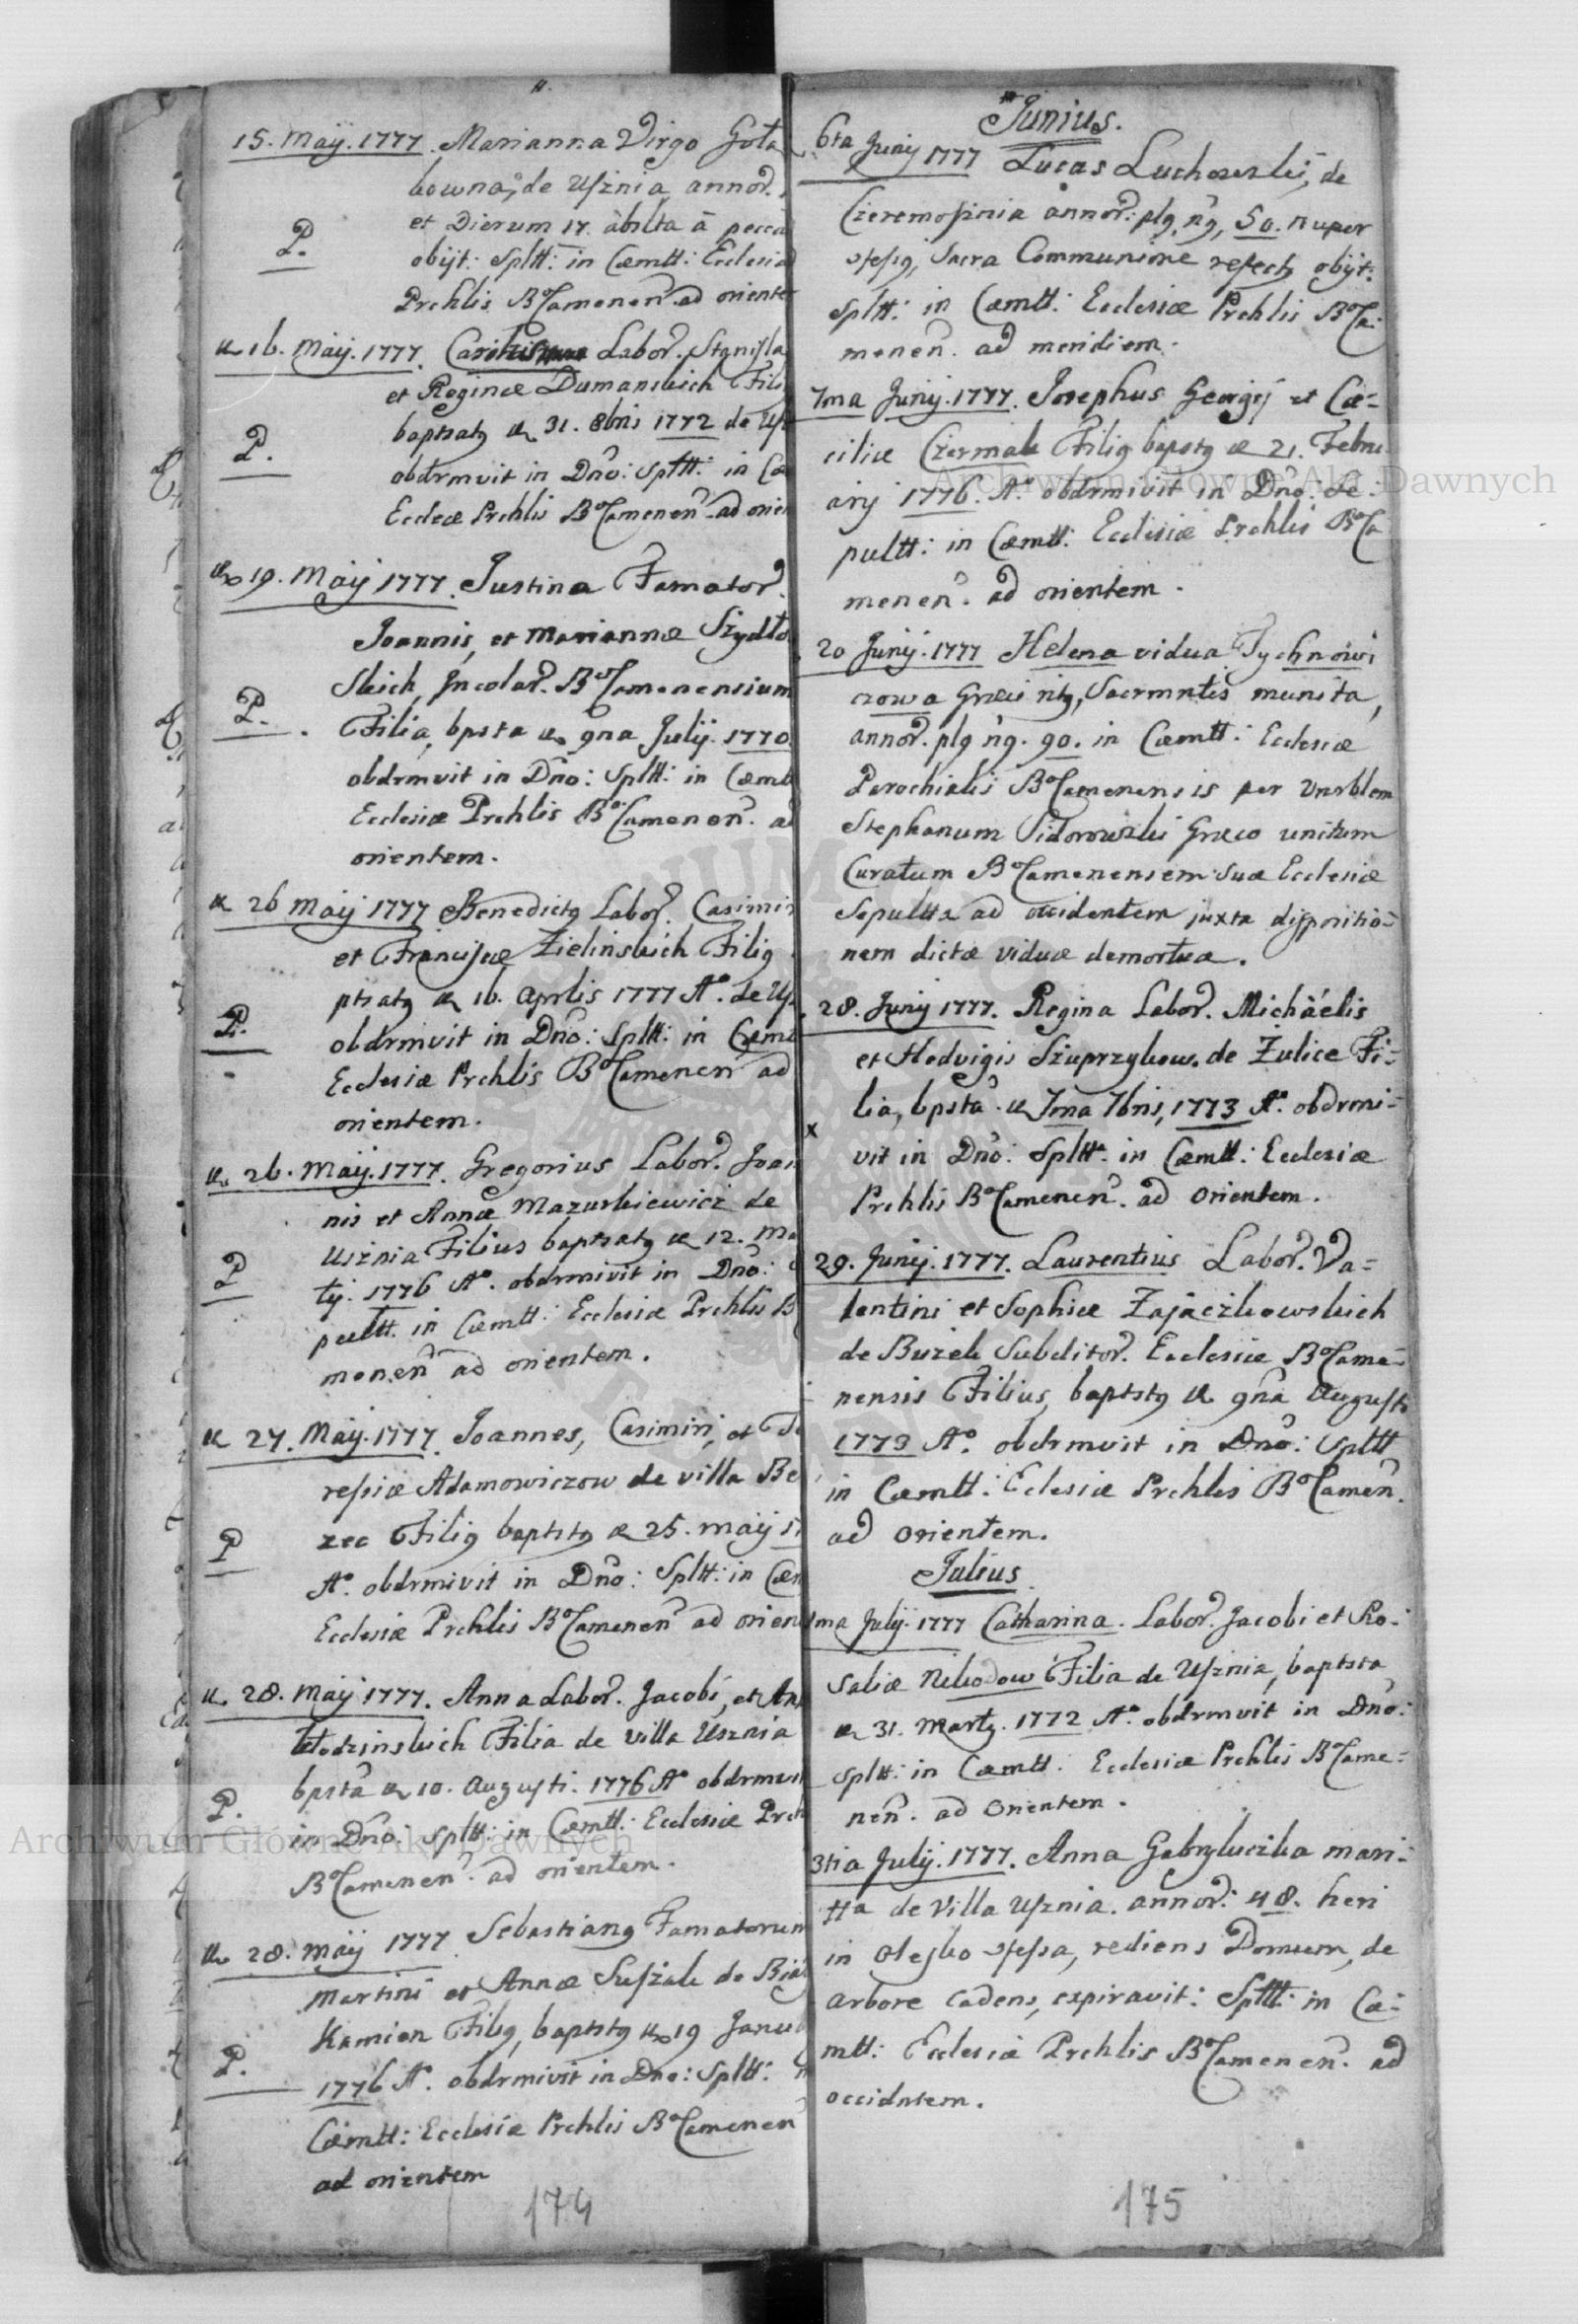 15. Maij. 1777. Marianna Virgo Goła
bowna, de Usznia annor.
et Dierum 17. abslta à pecca
P.
obijt: Spltt: in Cœmtt: Ecclesiæ
Prchlis BoCamenen. ad oriente
16. Maij. 1777. Labor. Stanisla
et Reginæ Dumanskich Fili
baptsatg 31. 8bris 1772 de Us
P.
obdrmvit in Dno: Spltt: in Cœ
Eccleæ Prchlis BoCamenen. ad orien
19. Maij 1777. Justina Famator.
Joannis, et Mariannæ Szydło
skich, Incolar. BoCamenensium
P.
Filia, bpsta 9na Julij. 1770.
obdrmvit in Dno: Spltt: in Cœmtt
Ecclesiæ Prchlis BoCamenen. ad
orientem.
26 Maij 1777 Benedictg Labor. Casimir
et Franciscæ Zielinskich Filig
ptsatg 16. Aprlis 1777 Ao. de Us
P.
obdrmvit in Dno: Spltt: in Cœmt
Ecclesiæ Prchlis BoCamenen ad
orientem.
26. Maij. 1777. Gregorius Labor. Joan
nis et Annæ Mazurkiewicz de
Usznia Filius baptsatg 12. Ma
P
tij. 1776 Ao. obdrmivit in Dno:
pultt. in Cœmtt: Ecclesiæ Prchlis B
menen ad orientem.
27. Maij. 1777. Joannes, Casimiri, et Te
resiæ Adamowiczow de villa Be
zec Filig baptstg 25. Maij
P
Ao. obdrmivit in Dno: Spltt: in Cœm
Ecclesiæ Prchlis BoCamenen ad orien
28. Maij 1777. Anna Labor. Jacobi, et An
Włodzinskich Filia de villa Usznia
bpsta 10. Augusti. 1776 Ao obdrmvit
P.
in Dno: spltt: in Cœmtt: Ecclesiæ Prch
BoCamenen. ad orientem.
28. Maij 1777 Sebastiang Famatorum
Martini et Annæ Suszak de Biał
Kamien Filig, baptstg 19 Janua
P.
1776 Ao. obdrmivit in Dno: Spltt: in
Cœmtt: Ecclesiæ Prchlis BoCamenen
ad orientem
174
Junius.
6ta Junij 1777 Lucas Luchowski, de
Czeremosznia annor: plg, ng, 50. nuper
Sacra Communione refectg obijt:
Spltt: in Cœmtt: Ecclesiæ Prchlis BoCa:
menen. ad meridiem.
7ma Junij. 1777. Josephus Georgij et Cæ-
ciliæ Czermak Filig bapstg 21. Febru-
arij 1776. Ao. obdrmivit in Dno: Se:
pultt: in Cœmtt: Ecclesiæ Prchlis BoCa
menen. ad orientem.
20 Junij. 1777 Helena vidua Tychnowi
czowa Græci ritg, Sacrmntis munita,
annor. plg ng. 90. in Cœmtt: Ecclesiæ
Parochialis BoCamenensis per Vnrblem
Stephanum Sidorowski Græco unitum
Curatum BoCamenensem suæ Ecclesiæ
Sepultta ad occidentem juxta dispositio-
nem dictæ viduæ demortuæ.
28. Junij 1777. Regina Labor. Michaelis
et Hedvigis Szuprzykow. de Żulice Fi-
lia, bpsta. 7ma 7bris, 1773 Ao. obdrmi-
x
vit in Dno: Spltt. in Cœmtt: Ecclesiæ
Prchlis BoCamenen. ad orientem.
29. Junij. 1777. Laurentius Labor. Va-
lentini et Sophiæ Zajączkowskich
de Buzek Subditor. Ecclesiæ BoCame-
nensis Filius, baptstg 9na Augusti
1773 Ao. obdrmvit in Dno: Spltt
in Cœmtt: Eclesiæ Prchlis BoCamen.
ad orientem.
Julius
1ma Julij. 1777 Catharina. Labor. Jacobi et Ro-
saliæ Nikodow Filia de Usznia, baptsta
31. Martg. 1772 Ao. obdrmvit in Dno:
spltt: in Cœmtt: Ecclesiæ Prchlis BoCame-
nen. ad Orientem.
3tia Julij. 1777. Anna Gabryluczka mari-
tta de villa Usznia. annor: 48. heri
in Olesko rediens Domum, de
arbore cadens, expiravit: Spltt: in Cæ-
mtt: Ecclesiæ Prchlis BoCamenen. ad
occidntem.
175
Archiwum Główne Akt Dawnych
Archiwum Główne Akt Dawnych